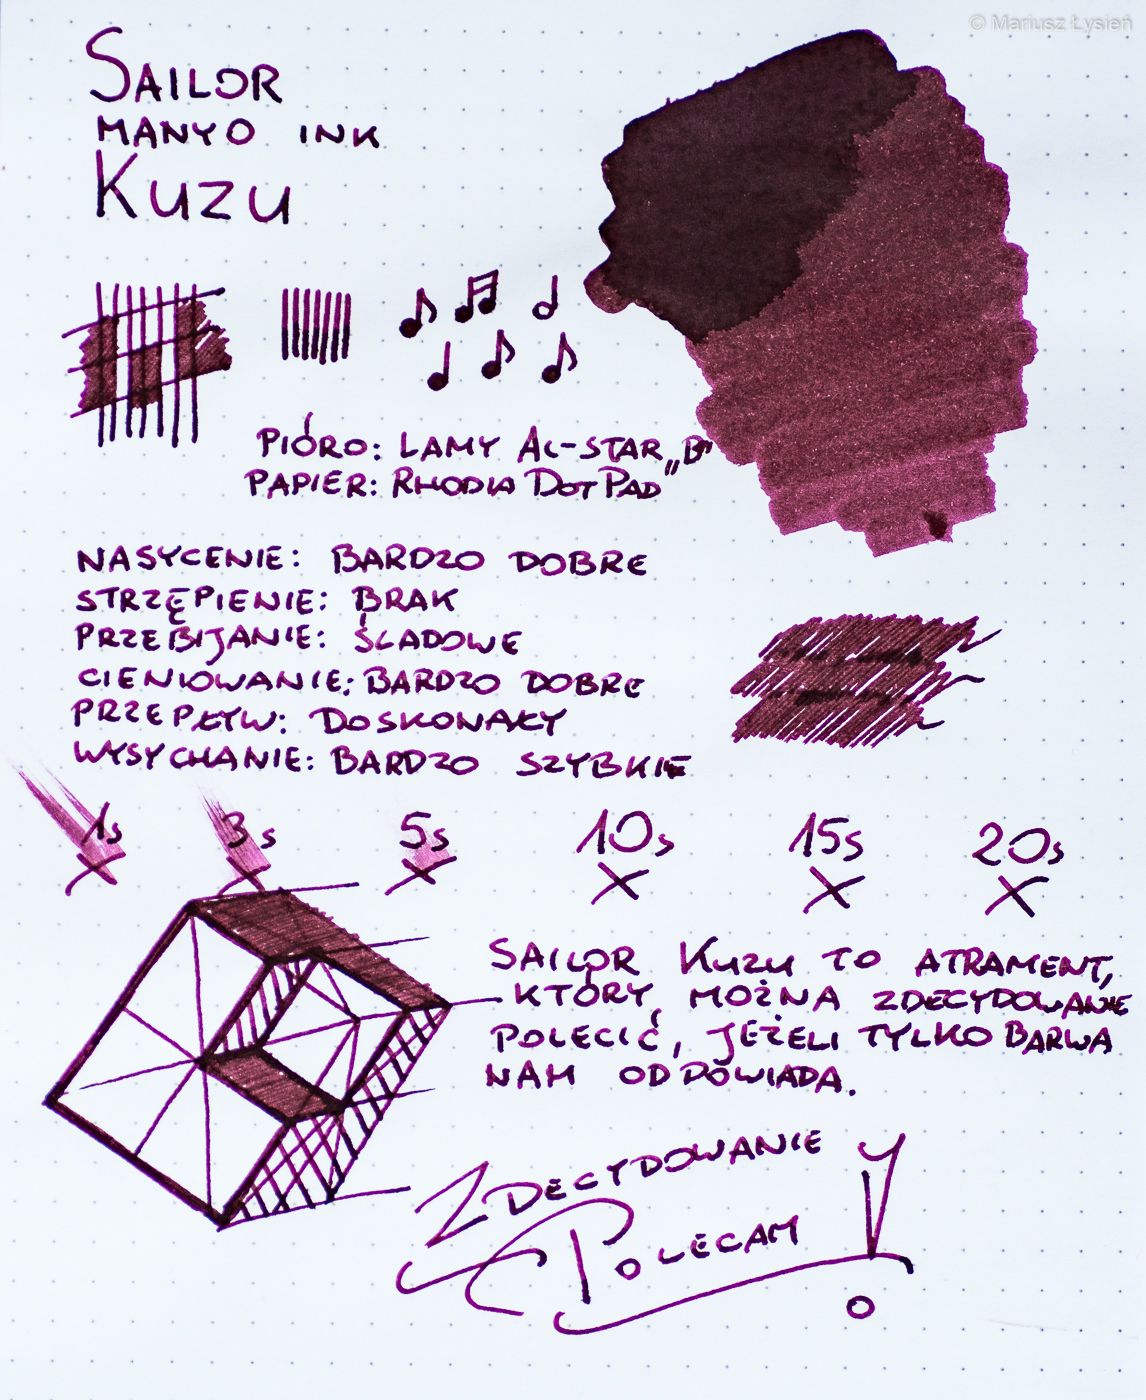 © Mariusz Łysień
SAILOR
MANYO INK
KUZU
PIÓRO: LAMY AL-STAR „B”
PAPIER: RHODIA DOT PAD
NASYCENIE: BARDZO DOBRE
STRZĘPIENIE: BRAK
PRZEBIJANIE: ŚLADOWE
CIENIOWANIE: BARDZO DOBRE
PRZEPŁYW: DOSKONAŁY
WYSYCHANIE: BARDZO SZYBKIE
1s 3s 5s 10s 15s 20s
SAILOR KUZU TO ATRAMENT,
KTÓRY MOŻNA ZDECYDOWANIE
POLECIĆ, JEŻELI TYLKO BARWA
NAM ODPOWIADA.
ZDECYDOWANIE
POLECAM!